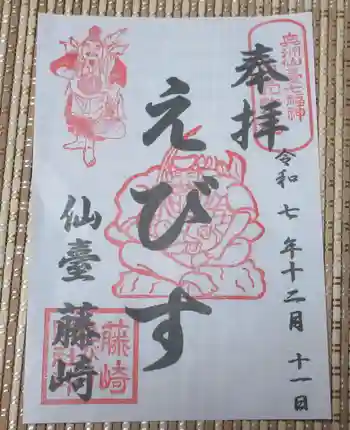 奉拝
令和七年十二月十一日
えびす
仙臺
藤崎
奥州仙臺七福神
藤崎